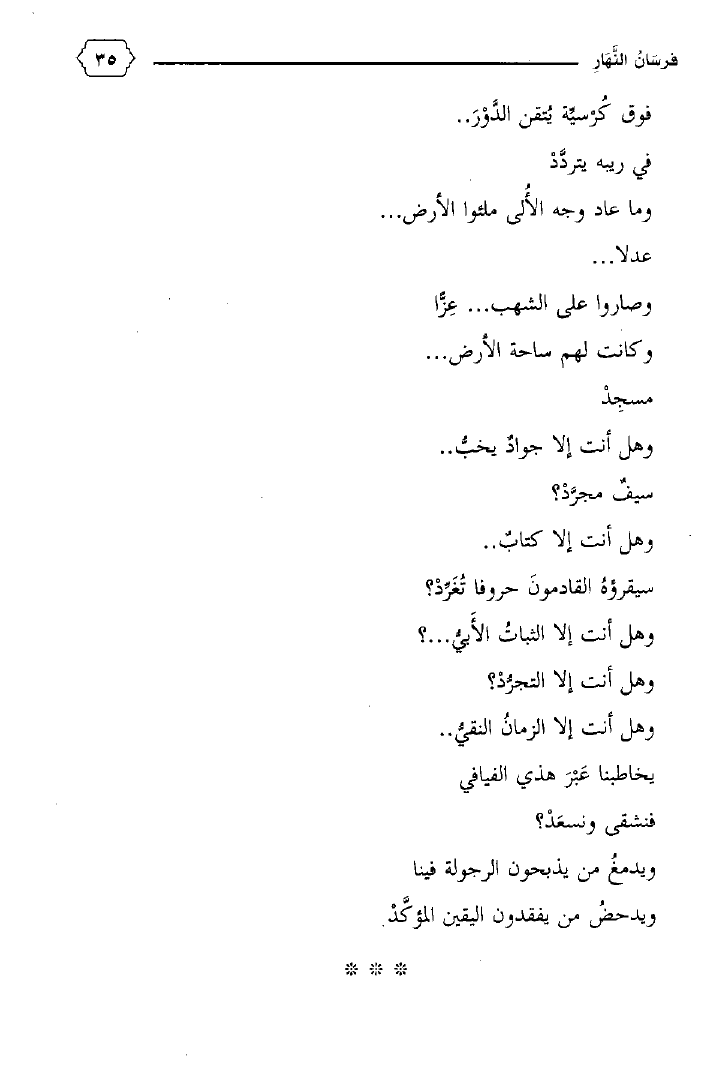 فرسَانُ النَّهَارِ ٣٥
فوق كُرْسيِّة يُتقن الدَّوْرَ..
في ريبه يتردَّدْ
وما عاد وجه الأُلى ملئوا الأرض...
عدلا...
وصاروا على الشهب... عِزًّا
وكانت لهم ساحة الأرض...
مسجِدْ
وهل أنت إلا جوادٌ يخبُّ..
سيفٌ مجرَّدْ؟
وهل أنت إلا كتابٌ..
سيقرؤهُ القادمونَ حروفا تُغَرِّدْ؟
وهل أنت إلا الثباتُ الأَبيُّ...؟
وهل أنت إلا التجرُّدْ؟
وهل أنت إلا الزمانُ النقيُّ..
يخاطبنا عَبْرَ هذي الفيافي
فنشقى ونسعَدْ؟
ويدمغُ من يذبحون الرجولة فينا
ويدحضُ من يفقدون اليقين المؤكَّدْ.
* * *